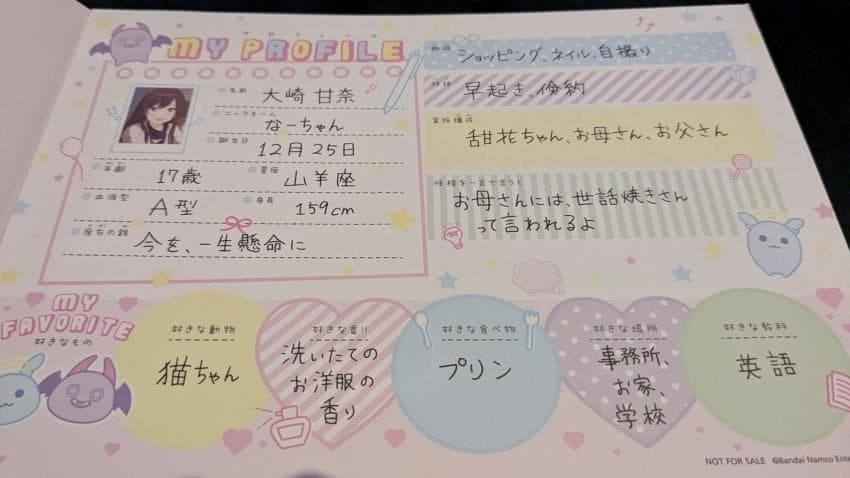 プロフィール
MY PROFILE
名前
大崎 甘奈
ニックネーム
なーちゃん
誕生日
12月25日
年齢
17歳
星座
山羊座
血液型
A型
身長
159cm
座右の銘
今を、一生懸命に
趣味
ショッピング、ネイル、自撮り
特技
早起き、倹約
家族構成
甜花ちゃん、お母さん、お父さん
性格を一言で言うと
お母さんには、世話焼きさん
って言われるよ
MY
FAVORITE
好きなもの
好きな動物
猫ちゃん
好きな香り
洗いたての
お洋服の
香り
好きな食べ物
プリン
好きな場所
事務所、
お家、
学校
好きな教科
英語
NOT FOR SALE ©Bandai Namco Ente